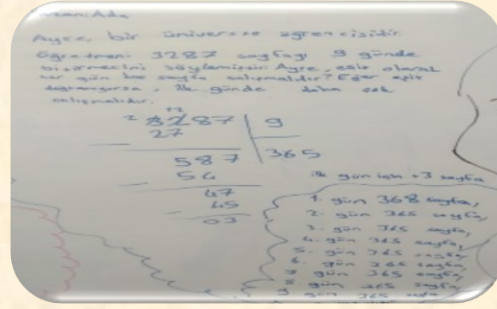 Yazan: Ada
Ayşe, bir üniversite öğrencisidir.
Öğretmeni 3287 sayfayı 9 günde
bitirmesini söylemiştir. Ayşe, eşit olarak
her gün kaç sayfa çalışmalıdır? Eğer eşit
, ilk günde daha çok
çalışmalıdır.
3287 | 9
27
587 | 365
54
47
45
03
ilk gün için +3 sayfa
1. gün 368 sayfa,
2. gün 365 sayfa,
3. gün 365 sayfa,
4. gün 365 sayfa,
5. gün 365 sayfa,
6. gün 365 sayfa,
7. gün 365 sayfa,
8. gün 365 sayfa,
9. gün 365 sayfa